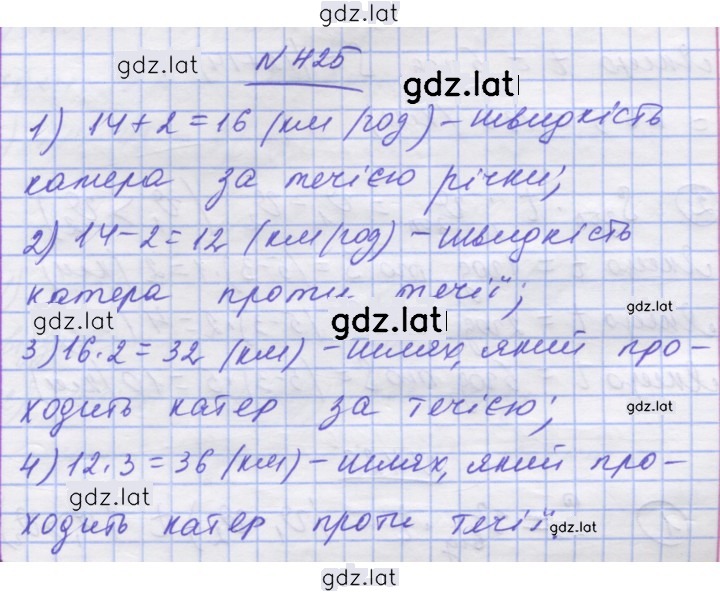 gdz.lat
N 425
gdz.lat
gdz.lat
1) 14+2=16 (км/год) – швидкість
катера за течією річки;
2) 14-2=12 (км/год) – швидкість
катера проти течії;
gdz.lat
gdz.lat
3) 16·2=32 (км) – шлях, який про-
ходить катер за течією;
gdz.lat
4) 12·3=36 (км) – шлях, який про-
gdz.lat
ходить катер проти течії.
gdz.lat
gdz.lat